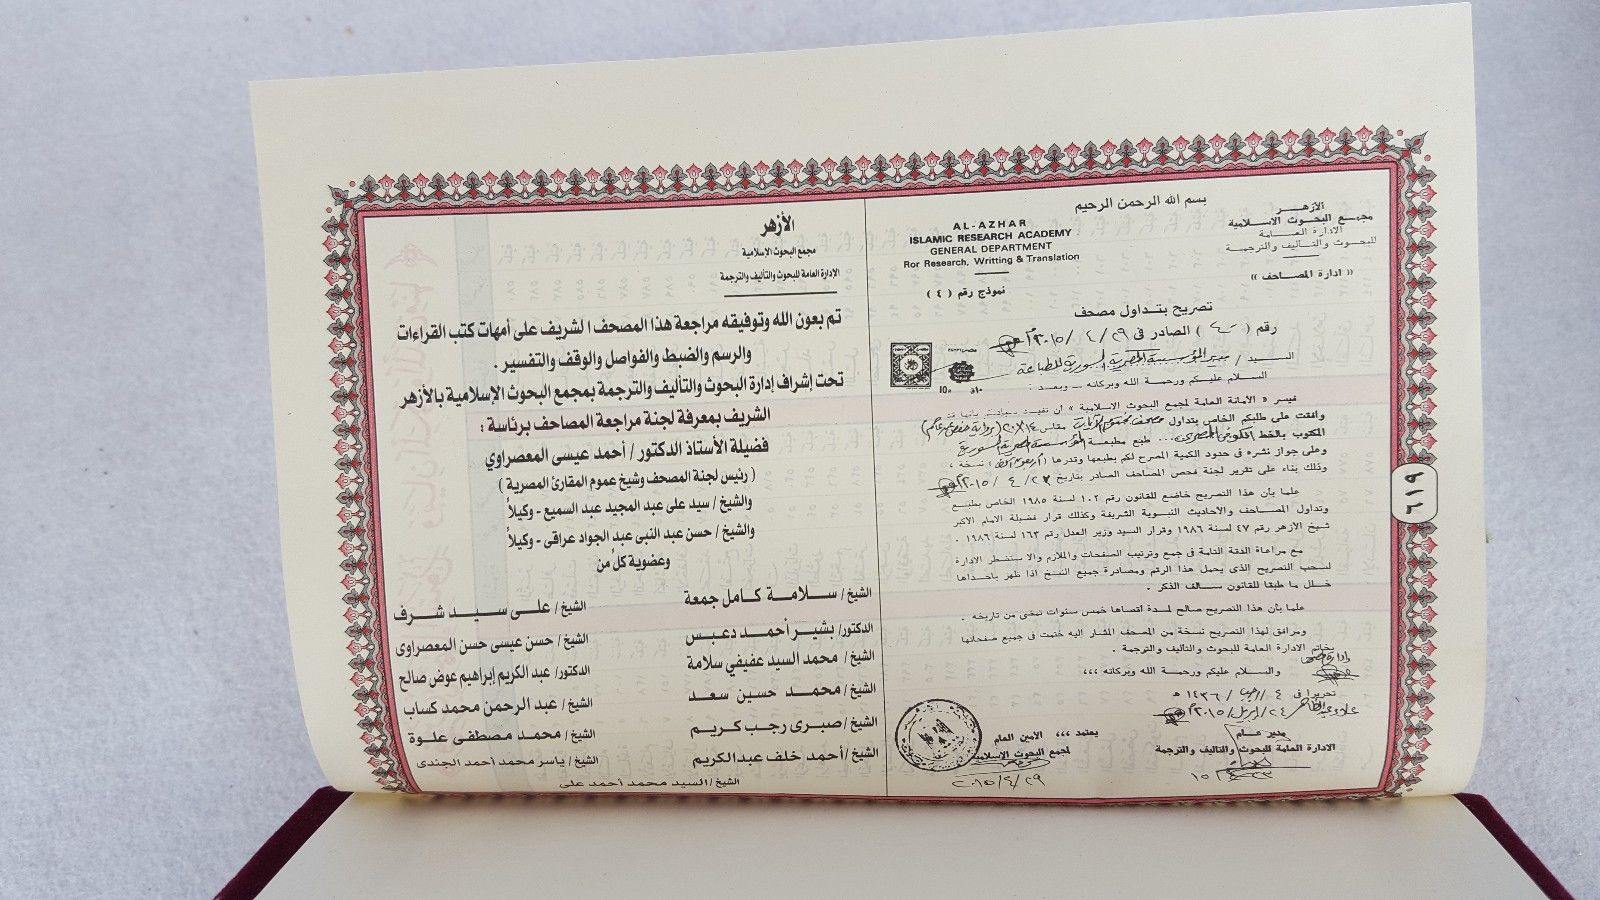 بسم الله الرحمن الرحيم
الأزهـــر
مجمـع البحـوث الاسـلامية
الادارة العـامـة
للبحـوث والتـأليف والترجمـة
« ادارة المصـاحف »
AL-AZHAR
ISLAMIC RESEARCH ACADEMY
GENERAL DEPARTMENT
Ror Research, Writting & Translation
نموذج رقم ( ٤ )
تصريح بتداول مصحف
رقم ( ) الصادر فى ٢٩ / ٤ / ٢٠١٥م
السيد / مدير المؤسسة المصرية السورية للطباعة
السلام عليكم ورحمة الله وبركاته ــ وبعـد :
فيسر « الامانة العامة لمجمع البحوث الاسلامية » ان تفيد سيادتكم بأنها قد
وافقت على طلبكم الخاص بتداول مصحف مقاس ١٤/٢٠
المكتوب بالخط طبع مطبعة المؤسسة المصرية السورية
وعلى جواز نشره فى حدود الكمية المصرح لكم بطبعها وقدرها ( ) نسخة ،
وذلك بناء على تقرير لجنة فحص المصاحف الصادر بتاريخ ٢٣ / ٤ / ٢٠١٥م
علما بأن هذا التصريح خاضع للقانون رقم ١٠٢ لسنة ١٩٨٥ الخاص بطبع
وتداول المصاحف والاحاديث النبوية الشريفة وكذلك قرار فضيلة الامام الاكبر
شيخ الازهر رقم ٤٧ لسنة ١٩٨٦ وقرار السيد وزير العدل رقم ١٦٣ لسنة ١٩٨٦ .
مع مراعاة الدقة التامة فى جمع وترتيب الصفحات والملازم والا ستضطر الادارة
لسحب التصريح الذى يحمل هذا الرقم ومصادرة جميع النسخ اذا ظهر باحداها
خلل ما طبقا للقانون سالف الذكر .
علما بأن هذا التصريح صالح لمدة أقصاها خمس سنوات تمضى من تاريخه .
ومرافق لهذا التصريح نسخة من المصحف المشار اليه ختمت فى جميع صفحاتها
بخاتم الادارة العامة للبحوث والتأليف والترجمة .
والسلام عليكم ورحمة الله وبركاته ،،،
تحريرا فى ٤ / رجب / ١٤٣٦ هـ
٢٤ / ابريل / ٢٠١٥م
مدير عـــام
الادارة العامة للبحوث والتأليف والترجمة
يعتمد ،،، الامين العام
لمجمع البحوث الاسلامية
٢٠١٥/٤/٢٩
الأزهر
مجمع البحوث الإسلامية
الإدارة العامة للبحوث والتأليف والترجمة
تم بعون الله وتوفيقه مراجعة هذا المصحف الشريف على أمهات كتب القراءات
والرسم والضبط والفواصل والوقف والتفسير .
تحت إشراف إدارة البحوث والتأليف والترجمة بمجمع البحوث الإسلامية بالأزهر
الشريف بمعرفة لجنة مراجعة المصاحف برئاسة :
فضيلة الأستاذ الدكتور / أحمد عيسى المعصراوي
( رئيس لجنة المصحف وشيخ عموم المقارئ المصرية )
والشيخ / سيد على عبد المجيد عبد السميع - وكيلاً
والشيخ / حسن عبد النبى عبد الجواد عراقى - وكيلاً
وعضوية كلٌ من
الشيخ / سـلامـة كـامل جمعة
الشيخ / علـى سـيـد شـرف
الدكتور/ بشيـر أحمـد دعبـس
الشيخ / حسن عيسى حسن المعصراوى
الشيخ / محمد السيد عفيفي سلامة
الدكتور/ عبد الكريم إبراهيم عوض صالح
الشيخ / محمـد حسين سعد
الشيخ / عبد الرحمن محمد كساب
الشيخ / صبرى رجب كريم
الشيخ / محمد مصطفى علـوة
الشيخ / أحمد خلف عبد الكريم
الشيخ / ياسر محمد أحمد الجندى
الشيخ / السيد محمد أحمد على
٦١٩